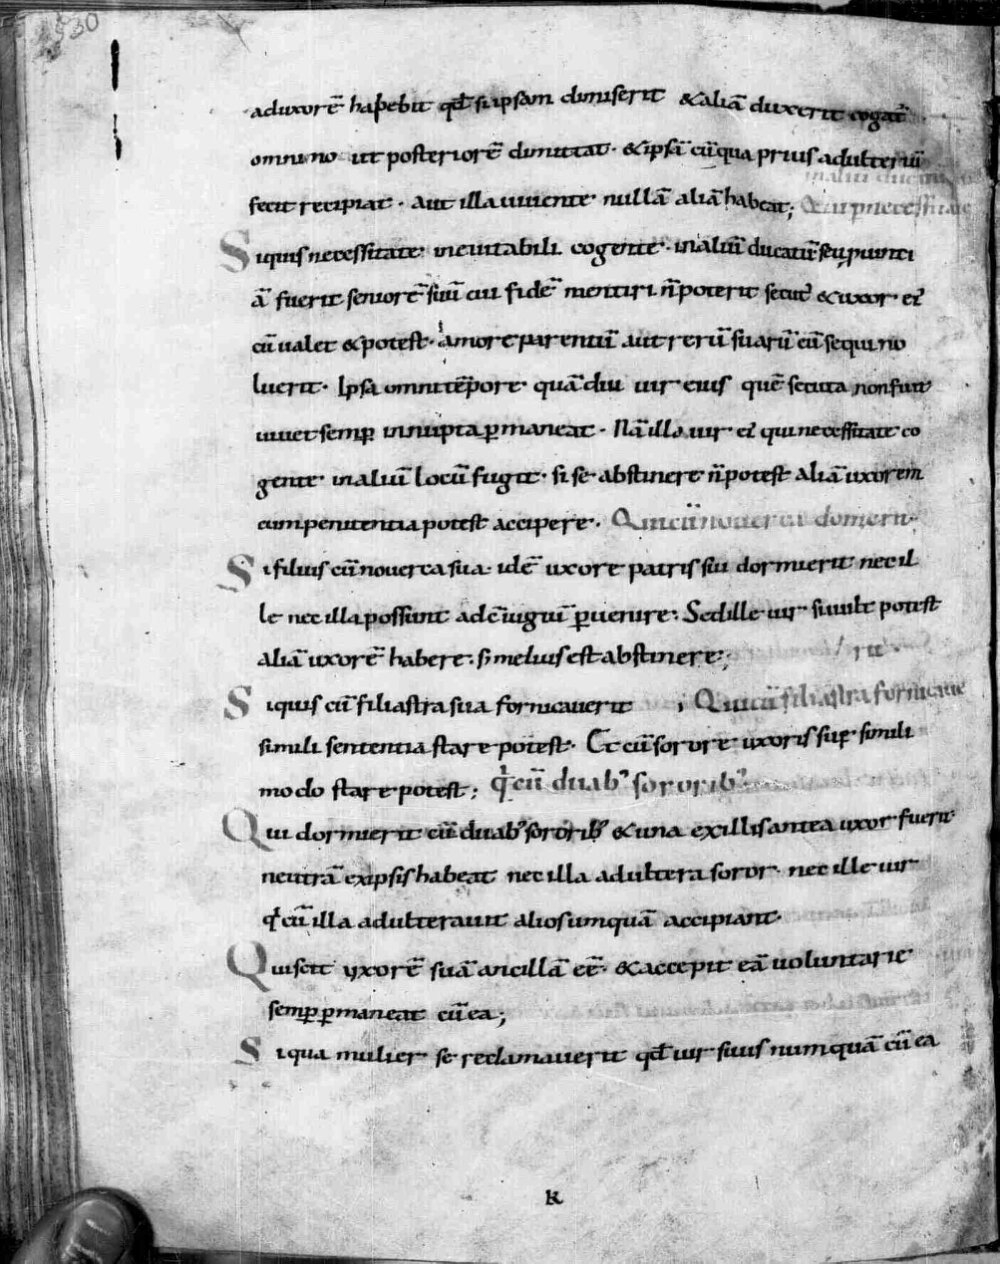 530
aduxorē habebit qđ siipsam dimiserit &aliā duxerit cogat̄
omnino ut posteriorē dimittat · &ipsā cū qua prius adulteriū
fecit recipiat · aut illa uiuente nullā aliā habeat; Qui p necessitate
in aliū ducatū
Siquis necessitate ineuitabili cogente · inaliū ducatū seu prouinci
ā fuerit seniorē suū cui fidē mentiri n̄ poterit secut᾿ &uxor ei᾿
cū ualet &potest · amore parentū aut rerū suarū eū sequi no
luerit · Ipsa omni tēpore quādiu uir eius quē secuta non fuit
uiuet semp innupta pmaneat · Nā ille uir ei᾿ qui necessitate co
gente inaliū locū fugit · si se abstinere n̄ potest aliā uxorem
cum penitentia potest accipere · Qui cū nouerca dormierit
Si filius cū nouerca sua · idē uxore patris sui dormierit nec il
le nec illa possunt ad c̄iugiū puenire · Sed ille uir si uult potest
aliā uxorē habere · s; melius est abstinere;
rit
Siquis cū filiastra sua fornicauerit ; Qui cū filiastra fornicaue
simili sententia stare potest · Et cū sorore uxoris suę simili
modo stare potest; q̇ cū duab᾿ sororib᾿
Qui dormierit cū duab᾿ sororib᾿ &una exillis antea uxor fuerit
neutrā exipsis habeat nec illa adultera soror nec ille uir
q̇ cū illa adulterauit alios umquā accipiant ·
Qui scit uxorē suā ancillā eē · &accepit eā uoluntarie
semp pmaneat cū ea;
Siqua mulier se reclamauerit qđ uir suus numquā cū ea
K